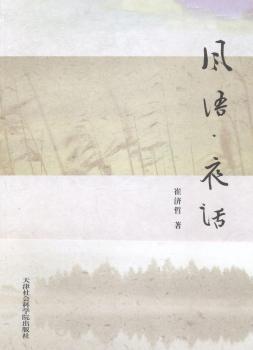 风语·夜话
崔济哲 著
天津社会科学院出版社